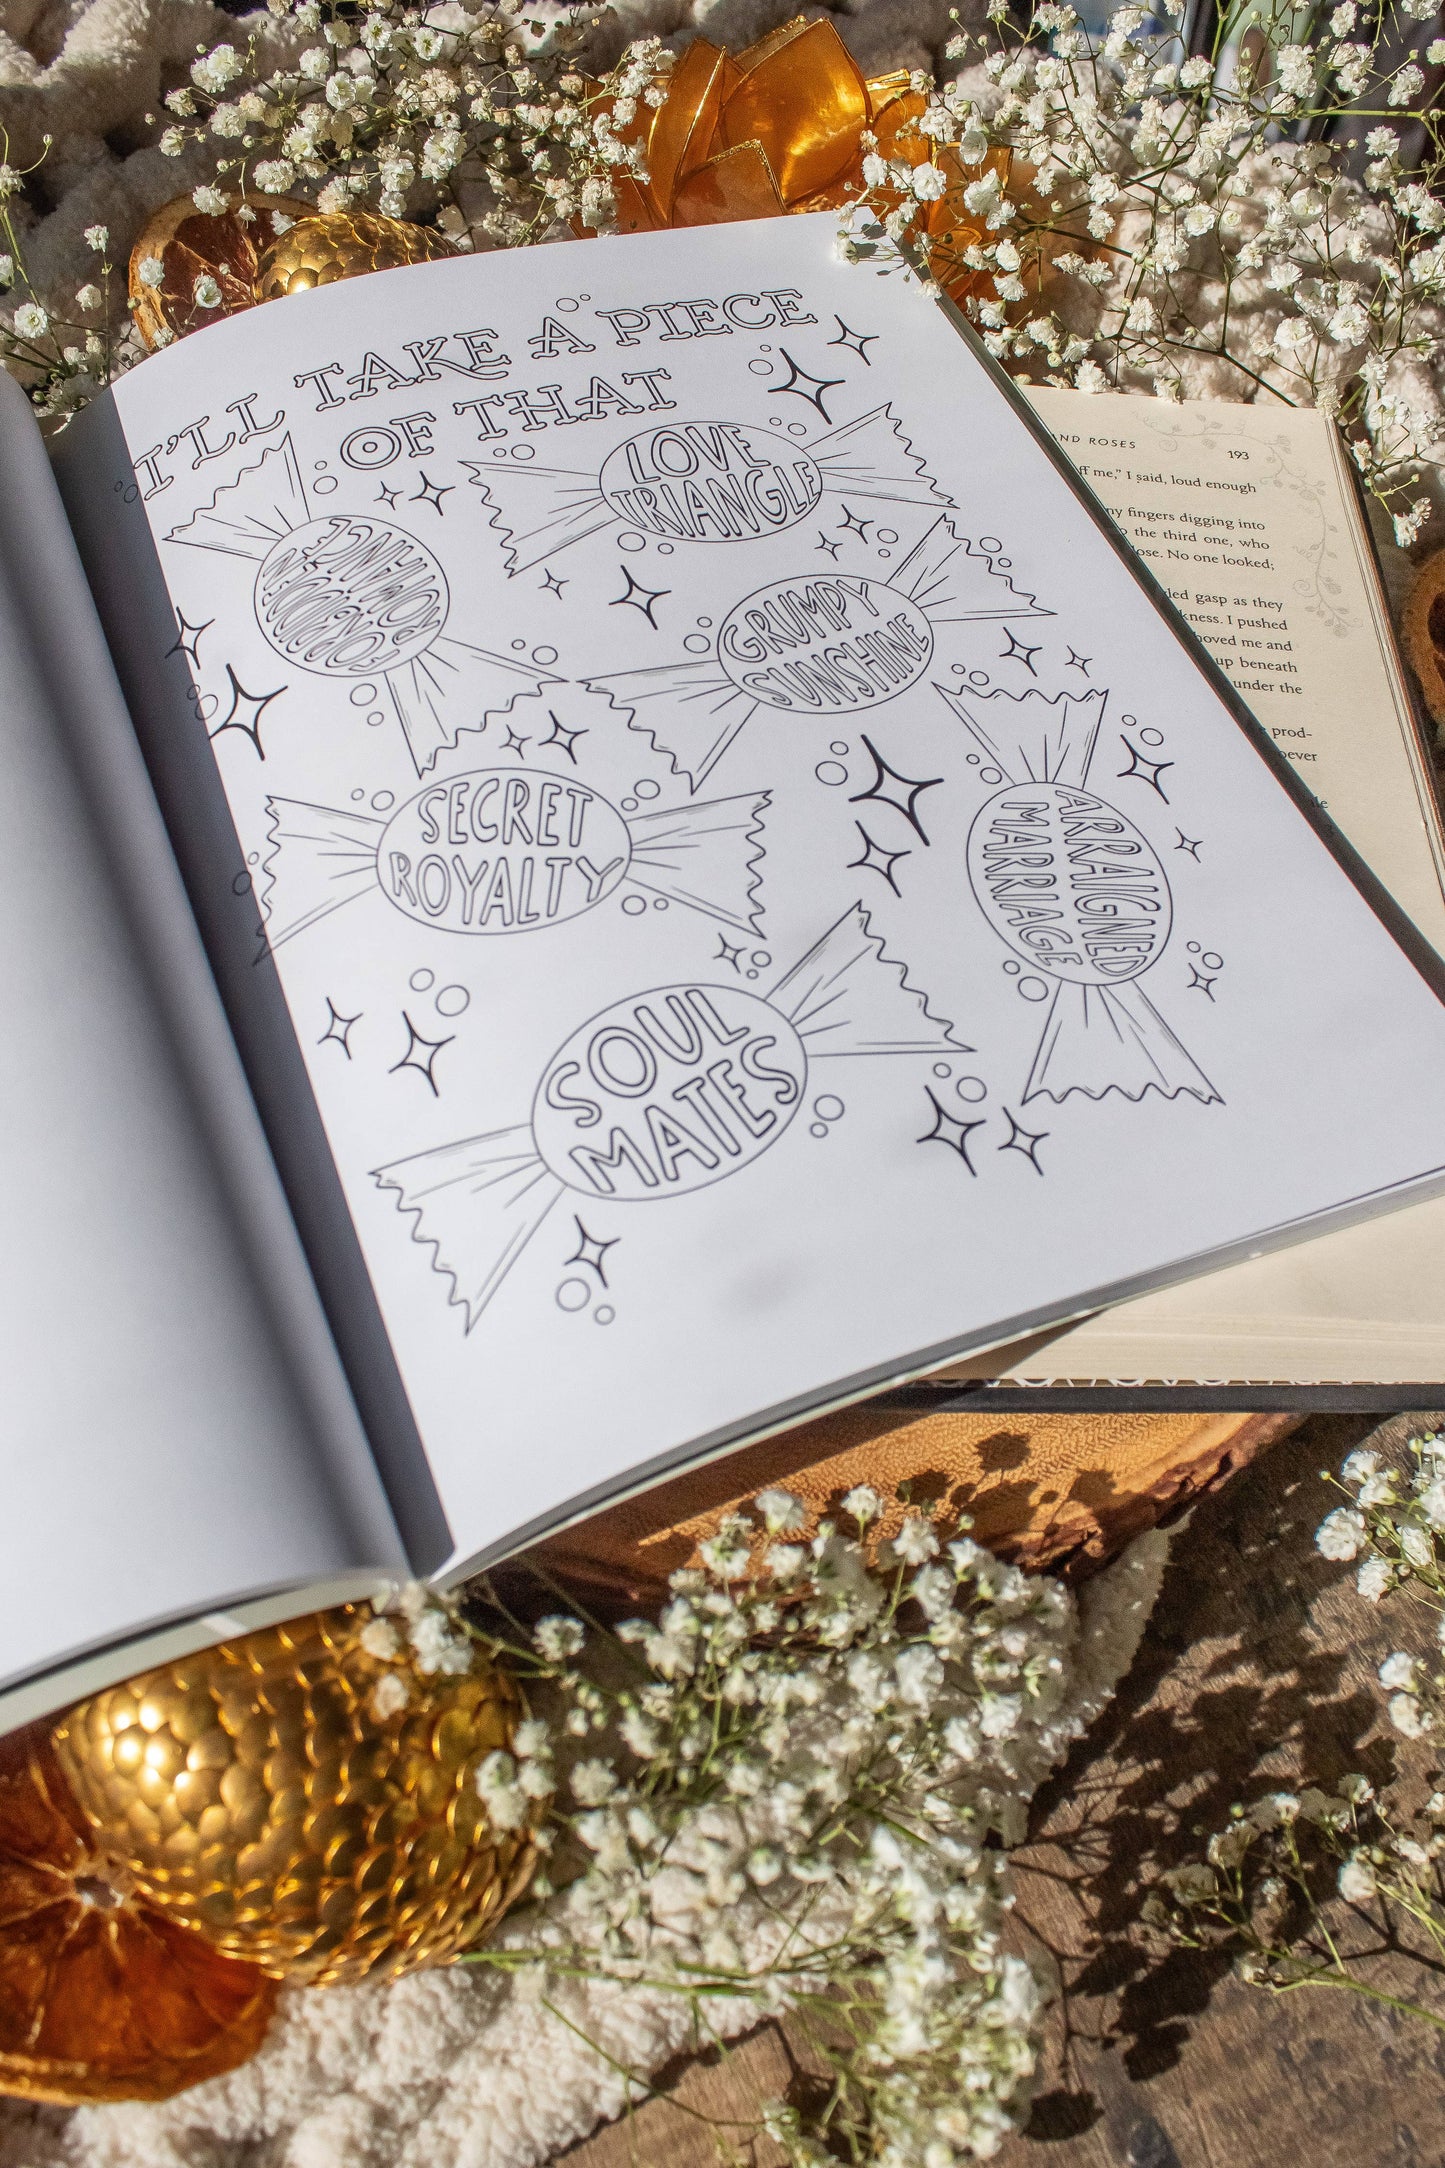 I'LL TAKE A PIECE
OF THAT
LOVE
TRIANGLE
FORBIDDEN
ROMANCE
GRUMPY
SUNSHINE
SECRET
ROYALTY
ARRAIGNED
MARRIAGE
SOUL
MATES
AND ROSES 193
ff me," I said, loud enough
ny fingers digging into
the third one, who
lose. No one looked;
led gasp as they
kness. I pushed
oved me and
up beneath
under the
prod-
oever